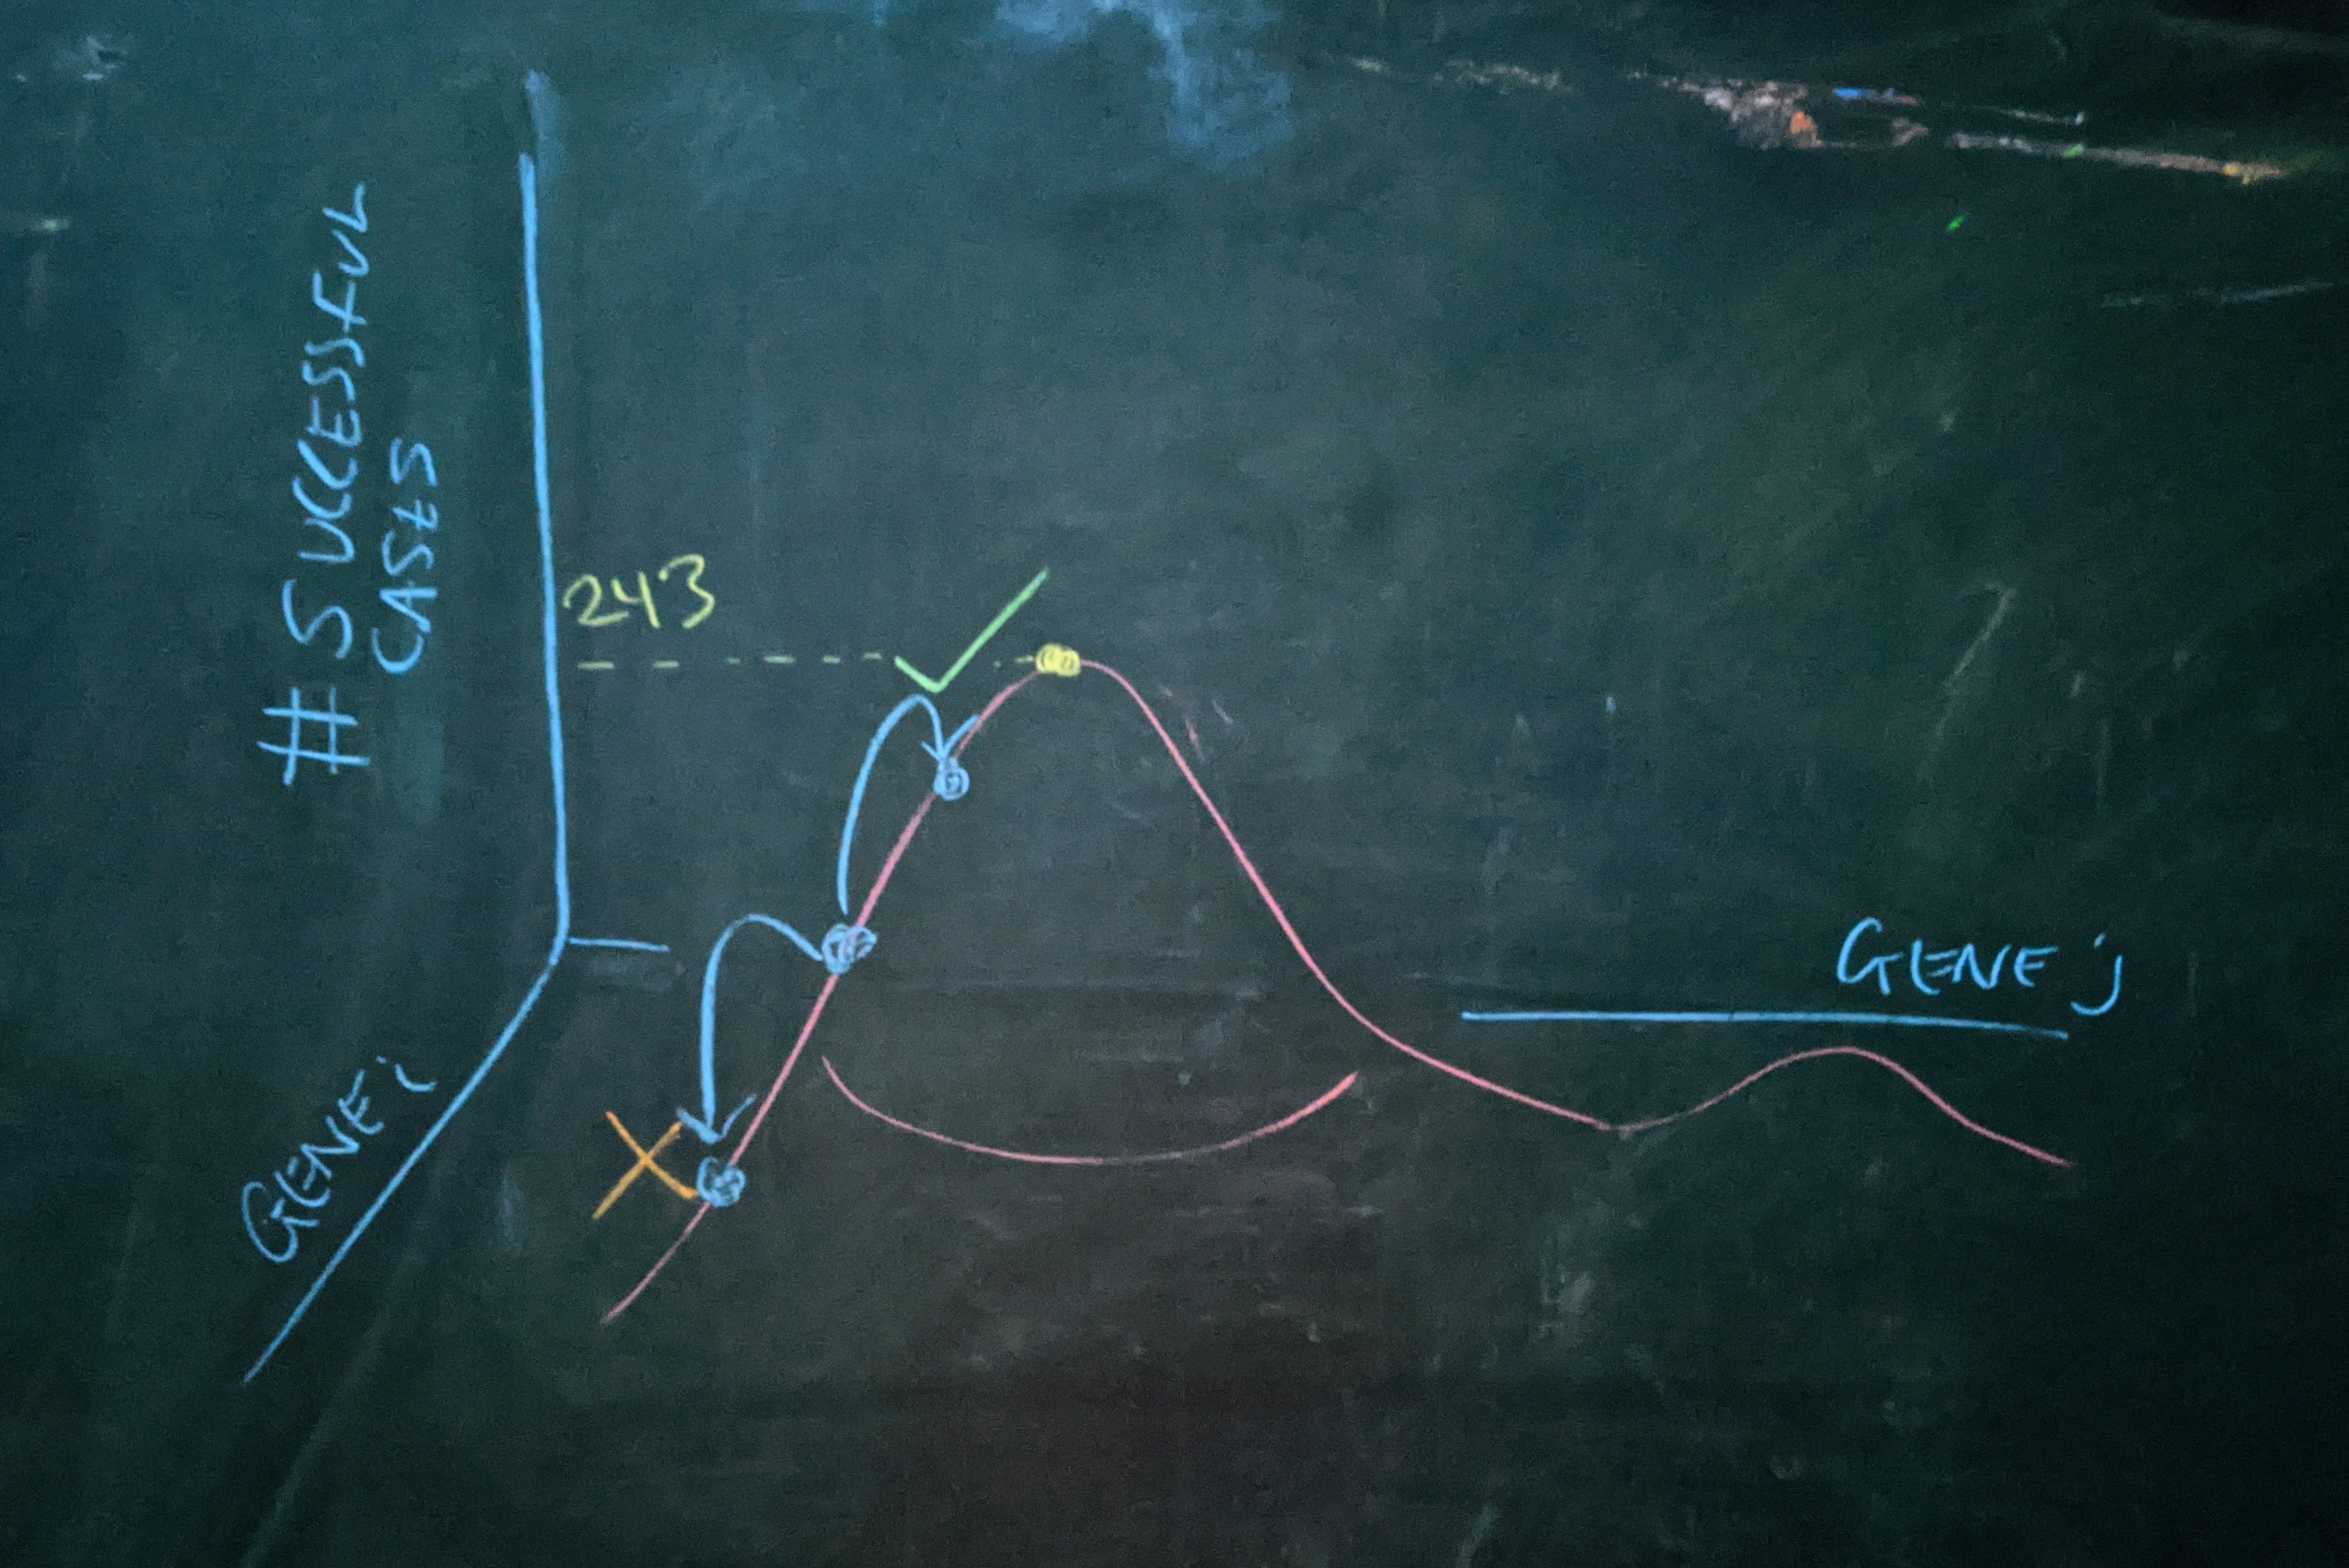 # SUCCESSFUL
CASES
243
GENE j
GENE i